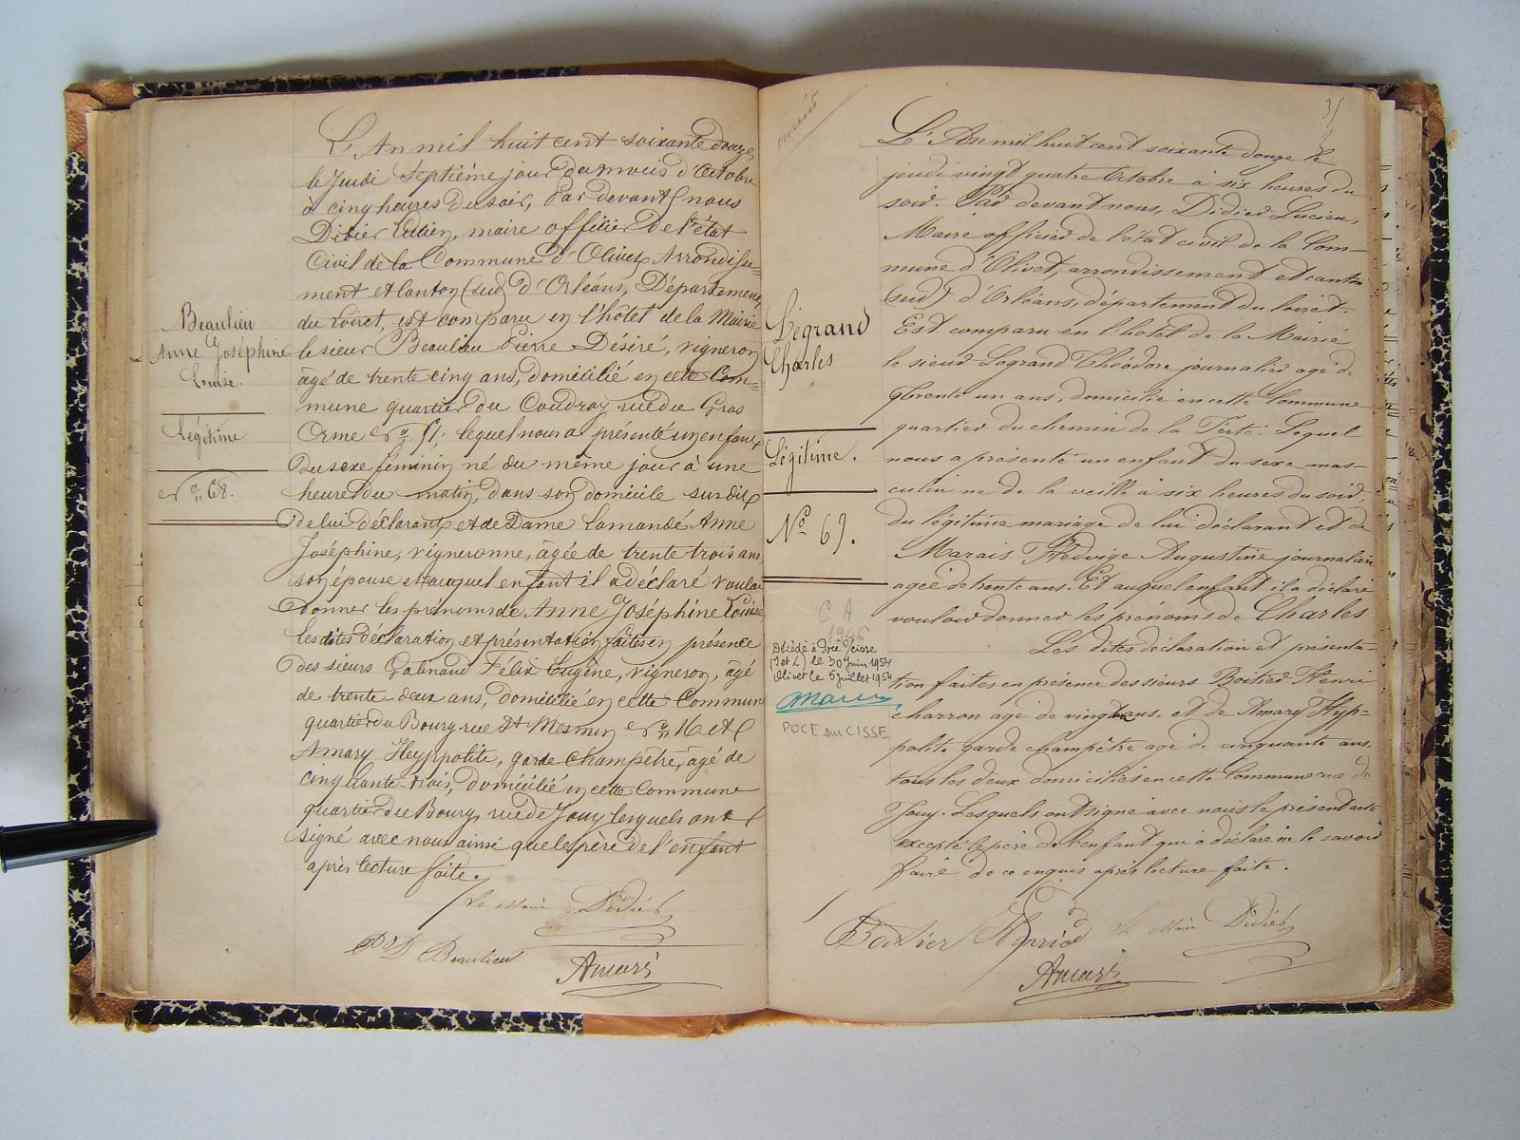 Beaulieu
Anne Joséphine
Louise.
Légitime
N° 68.
L'An mil huit cent soixante douze,
le Jeudi Septième jour du mois d'Octobre
à cinq heures du soir, Par devant nous
Didier Lucien, maire officier de l'état
Civil de la Commune d'Olivet Arrondisse-
ment et Canton (sud) d'Orléans, Département
du Loiret, est comparu en l'hôtel de la Mairie
le sieur Beaulieu Pierre Désiré, vigneron
âgé de trente cinq ans, domicilié en cette Com-
mune quartier du Coudray rue du Gros
Orme N° 51; lequel nous a présenté un enfant
Du sexe féminin né du même jour à une
heure du matin, dans son domicile susdit
De lui déclarant et de Dame Lamande Anne
Joséphine, vigneronne, âgée de trente trois ans
son épouse et auquel enfant il a déclaré vouloir
Donner les prénoms de Anne Joséphine Louise
les dites déclaration et présentation faites en présence
des sieurs Gatinaud Félix Eugène, vigneron, âgé
de trente deux ans, Domicilié en cette Commune
quartier du Bourg rue St Mesmin N° 16 et
Amary Heyppolite, garde champêtre, âgé de
cinquante trois, domicilié en cette Commune
quartier du Bourg, rue de Jouy lesquels ont
signé avec nous ainsi que le père de l'enfant
après lecture faite.
Le Maire Didier
P D Beaulieu
Amari
35
Legrand
Charles
Légitime.
No 69.
C A
1906
Décédé à Pocé Cisse
(I et L) le 30 Juin 1954
Olivet le 5 juillet 1954
POCE sur CISSE
L'An mil huit cent soixante douze le
jeudi vingt quatre Octobre à six heures du
soir. Par devant nous, Didier Lucien,
Maire officier de l'état civil de la Com-
mune d'Olivet, arrondissement et canton
(sud) d'Orléans, département du Loiret.
Est comparu en l'hôtel de la Mairie
le sieur Legrand Théodore journalier agé de
trente un ans, domicilié en cette Commune
quartier du chemin de la Ferté. Lequel
nous a présenté un enfant du sexe mas-
culin né de la veille à six heures du soir.
du légitime mariage de lui déclarant et de
Marais Hedvige Augustine journalière
agée de trente ans. Et auquel enfant il a déclaré
vouloir donner les prénoms de Charles
Les dites déclaration et présenta-
tion faites en présence des sieurs Boutier Henri
charron agé de vingt ans. et de Amary Hyp-
polite garde champêtre agé de cinquante ans.
tous les deux domiciliés en cette Commune rue de
Jouy. Lesquels ont signé avec nous le présent acte
excepté le père de l'enfant qui a déclaré ne le savoir
faire de ce enquis après lecture faite.
Boutier Henri Le Maire Didier
Amari